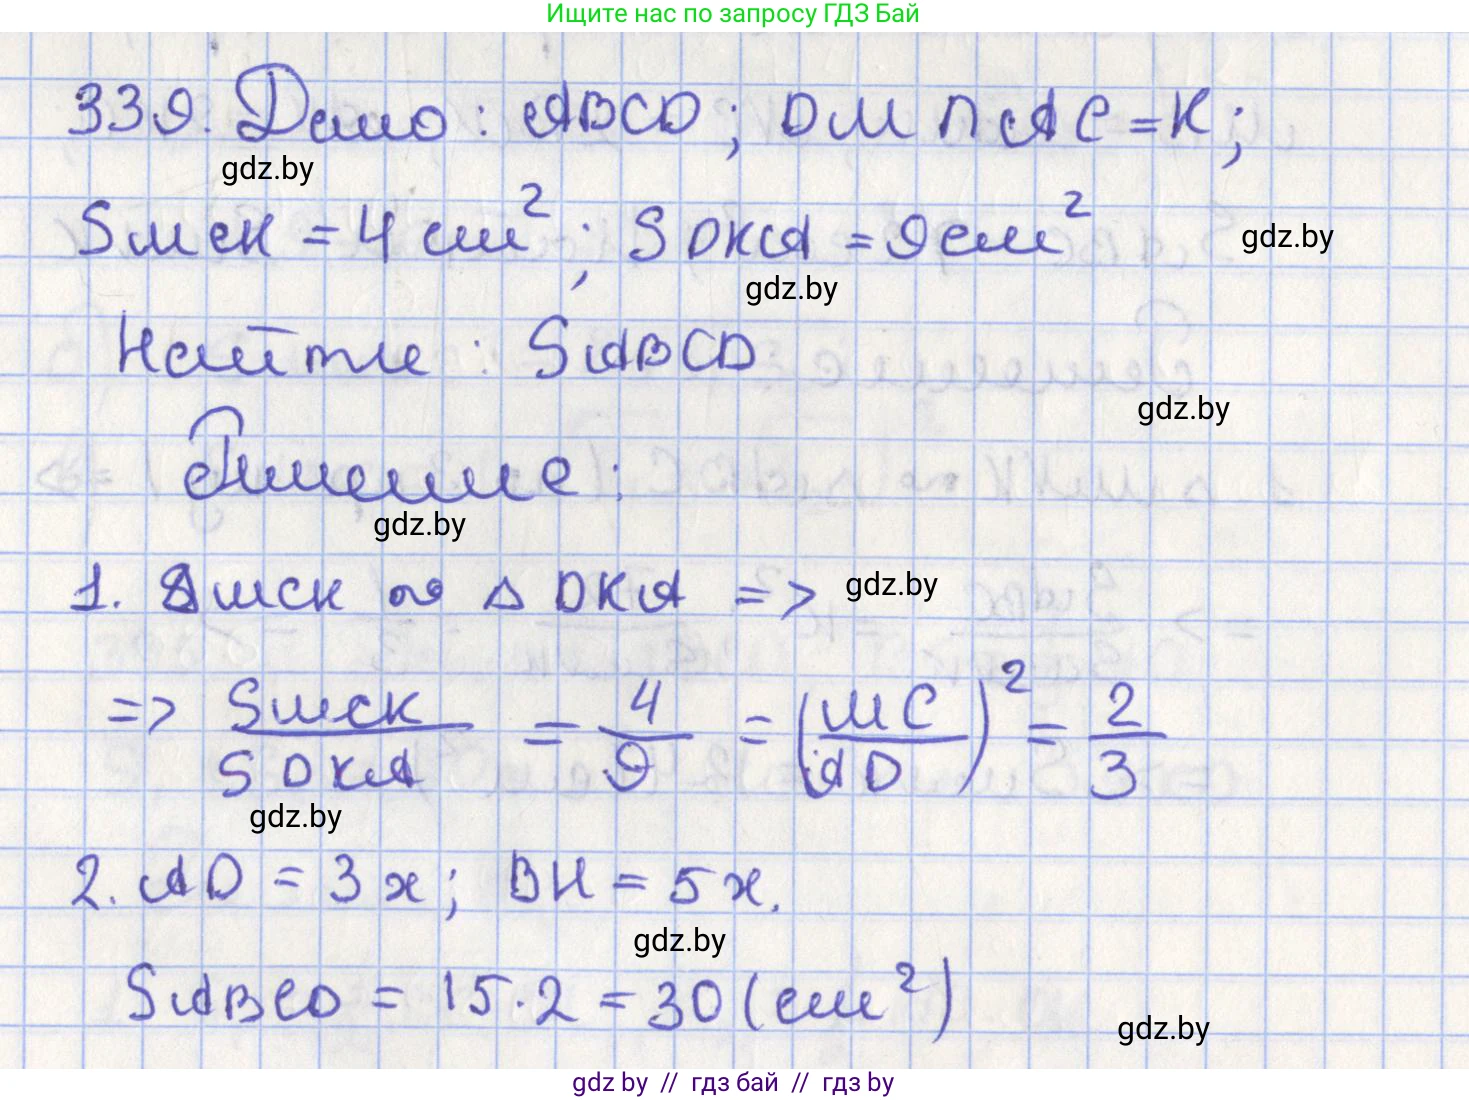 Ищите нас по запросу ГДЗ Бай
339. Дано: ABCD; DM ∩ AC = K;
gdz.by
SMCK = 4 см²; SDKA = 9 см²
gdz.by
gdz.by
Найти: SABCD
gdz.by
Решение:
gdz.by
1. ΔMCK ∾ ΔDKA =>
gdz.by
=> SMCK / SDKA = 4/9 = (MC/AD)² = 2/3
gdz.by
2. AD = 3x; BH = 5x.
gdz.by
SABCD = 15·2 = 30 (см²)
gdz.by
gdz by // гдз бай // gdz by